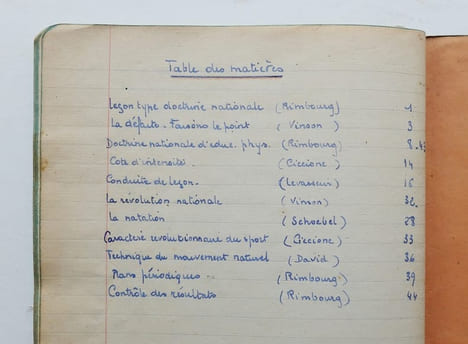 Table des matières
Leçon type doctrine nationale (Rimbourg) 1
La défaite - Faisons le point (Vinson) 3
Doctrine nationale d'educ. phys. (Rimbourg) 8
Cote d'intensité. (Ciccione) 14
Conduite de leçon. (Levasseur) 16
La révolution nationale (Vinson)
La natation (Schoebel) 28
Caractère revolutionnaire du sport (Ciccione) 33
Technique du mouvement naturel (David) 36
Plans périodiques (Rimbourg) 39
Contrôle des résultats (Rimbourg) 44